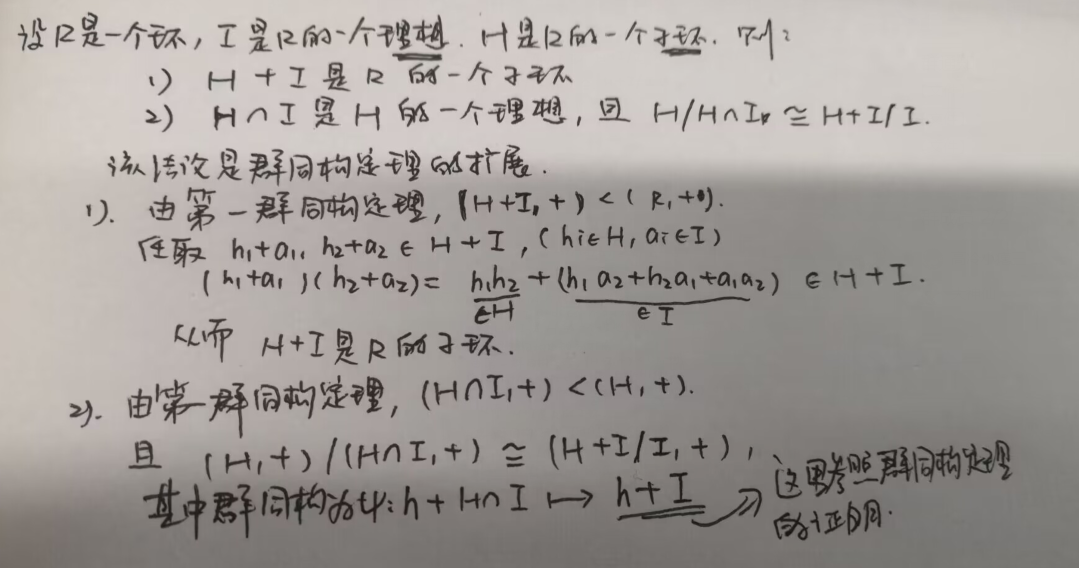 设R是一个环, I是R的一个理想. H是R的一个子环. 则:
1) H+I是R的一个子环
2) H∩I是H的一个理想, 且 H/H∩I ≅ H+I/I.
该结论是群同构定理的扩展.
1). 由第一群同构定理, (H+I,+) < (R,+).
任取 h₁+a₁, h₂+a₂ ∈ H+I, (hi∈H, ai∈I)
(h₁+a₁)(h₂+a₂) = h₁h₂ + (h₁a₂+h₂a₁+a₁a₂) ∈ H+I.
∈H ∈I
从而 H+I是R的子环.
2). 由第一群同构定理, (H∩I,+) < (H,+).
且 (H,+)/(H∩I,+) ≅ (H+I/I,+),
其中群同构为φ: h+H∩I ↦ h+I
这里参照群同构定理
的证明.